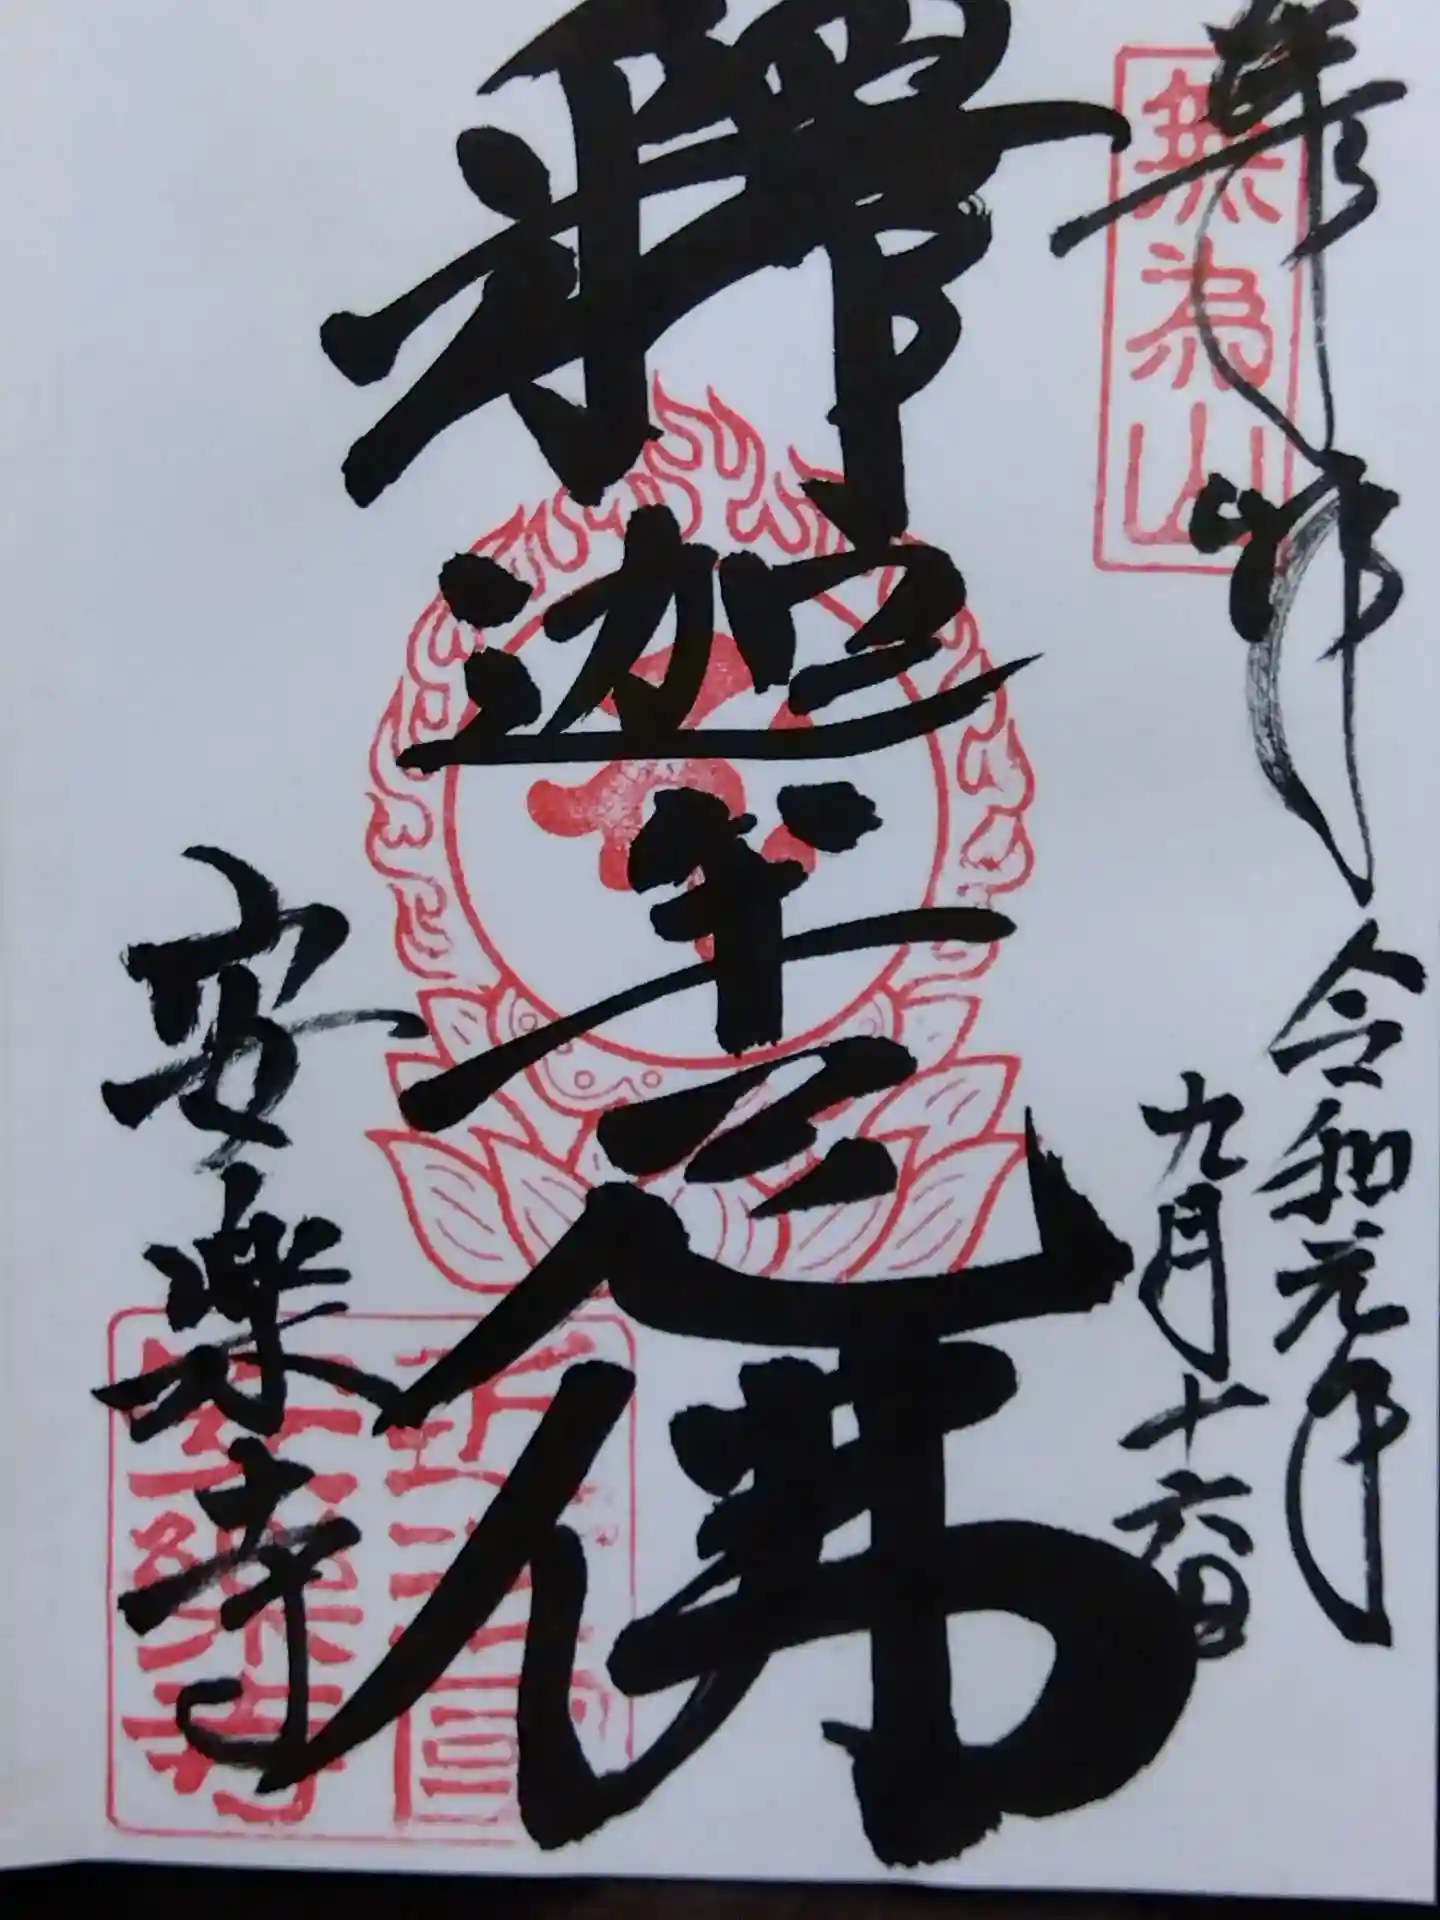 無為山
奉拝
令和元年
九月十六日
釋迦牟尼佛
安楽寺
安樂寺